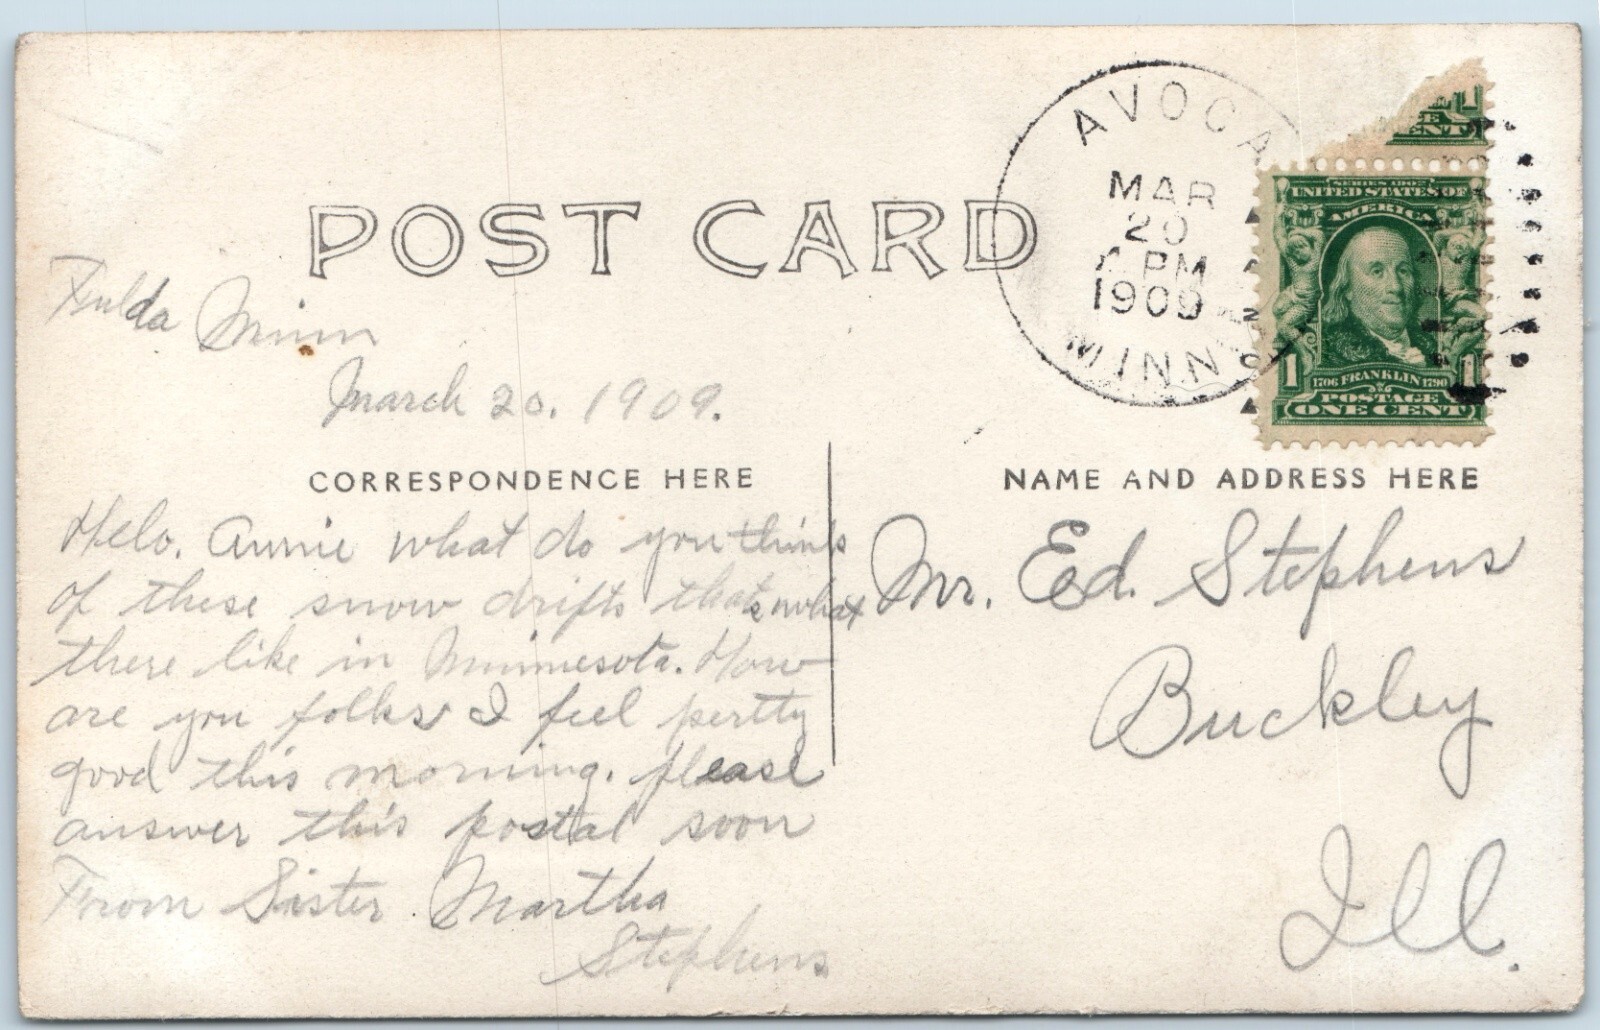 AVOCA
MAR
20
PM
1909
MINN
ENT
SERIES 1902
UNITED STATES OF
AMERICA
1 1
1706 FRANKLIN 1790
POSTAGE
ONE CENT
POST CARD
Fulda Minn
March 20. 1909.
CORRESPONDENCE HERE
Helo. Annie what do you think
of these snow drifts thats what
there like in Minnesota. How
are you folks I feel pertty
good this morning. please
answer this postal soon
From Sister Martha
Stephens
NAME AND ADDRESS HERE
Mr. Ed. Stephens
Buckley
Ill.